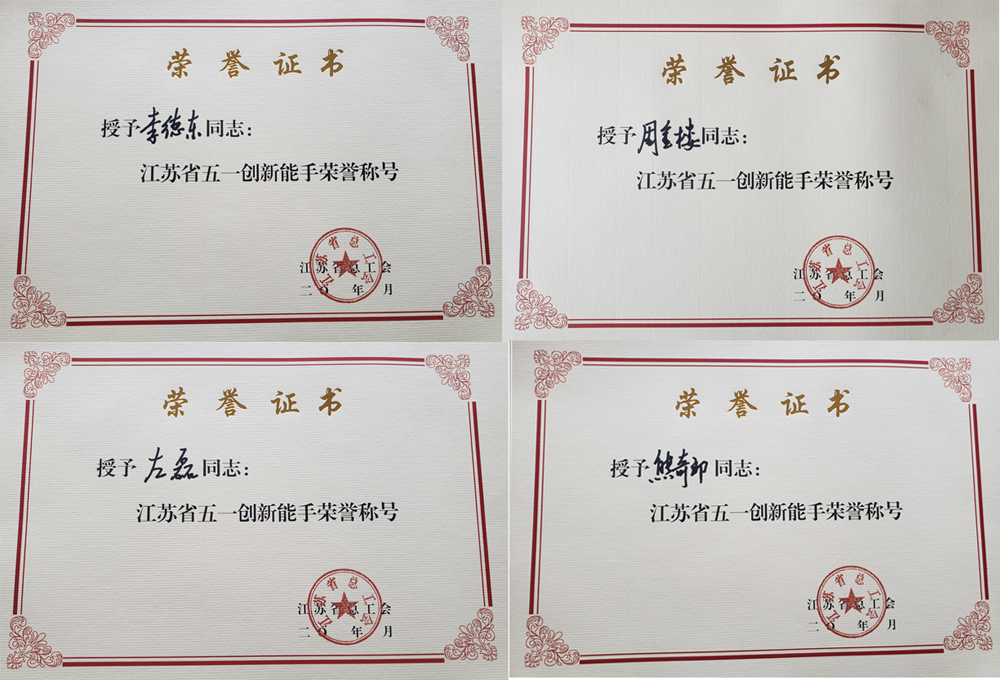 荣誉证书
授予李德东同志：
江苏省五一创新能手荣誉称号
江苏省总工会
二〇 年 月
江苏省总工会
荣誉证书
授予周金楼同志：
江苏省五一创新能手荣誉称号
江苏省总工会
二〇 年 月
江苏省总工会
荣誉证书
授予左磊同志：
江苏省五一创新能手荣誉称号
江苏省总工会
二〇 年 月
江苏省总工会
荣誉证书
授予熊奇 同志：
江苏省五一创新能手荣誉称号
江苏省总工会
二〇 年 月
江苏省总工会